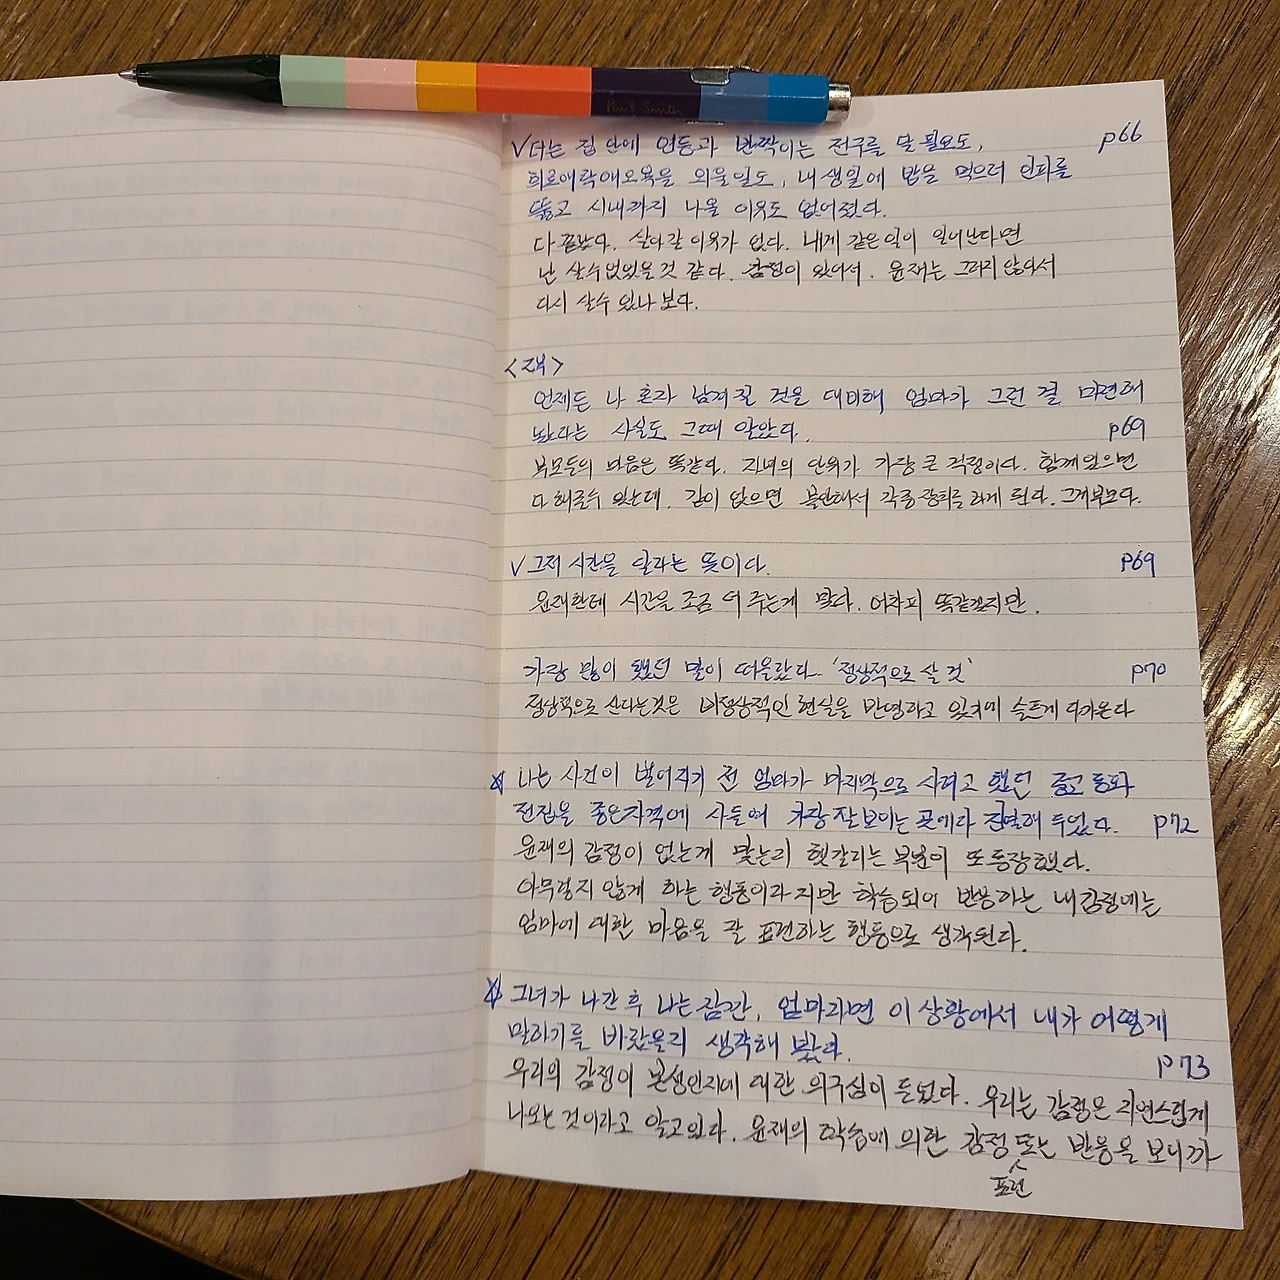 Paul Smith
✓ 더는 집 안에 연등과 반짝이는 전구를 달 필요도, p66
희로애락애오욕을 외울 일도, 내 생일에 밥을 먹으러 인파를
뚫고 시내까지 나올 이유도 없어졌다.
다 끝났다. 살아갈 이유가 없다. 내게 같은 일이 일어난다면
난 살 수 없었을 것 같다. 감정이 있어서. 윤재는 그러지 않아서
다시 살 수 있나 보다.
<2부>
언제든 나 혼자 남겨질 것을 대비해 엄마가 그런 걸 마련해
놨다는 사실도 그때 알았다. p69
부모들의 마음은 똑같다. 자녀의 안위가 가장 큰 걱정이다. 함께 있으면
다 해줄 수 있는데, 같이 없으면 불안해서 각종 장치를 하게 된다. 그게 부모다.
✓ 그저 시간을 달라는 뜻이다. p69
윤재한테 시간을 조금 더 주는게 맞다. 어차피 똑같겠지만.
가장 많이 했던 말이 떠올랐다. '정상적으로 살 것' p70
정상적으로 산다는 것은 비정상적인 현실을 반영하고 있기에 슬프게 다가온다
☆ 나는 사건이 벌어지기 전 엄마가 마지막으로 사려고 했던 중고 동화
전집을 좋은 가격에 사들여 가장 잘 보이는 곳에다 진열해 두었다. p72
윤재의 감정이 없는게 맞는지 헷갈리는 부분이 또 등장했다.
아무렇지 않게 하는 행동이라지만 학습되어 반응하는 내 감정에는
엄마에 대한 마음을 잘 표현하는 행동으로 생각된다.
☆ 그녀가 나간 후 나는 잠깐, 엄마라면 이 상황에서 내가 어떻게
말하기를 바랐을지 생각해 봤다. p73
우리의 감정이 본성인지에 대한 의구심이 든다. 우리는 감정은 자연스럽게
나오는 것이라고 알고있다. 윤재의 학습에 의한 감정 또는 반응을 보니까
표현